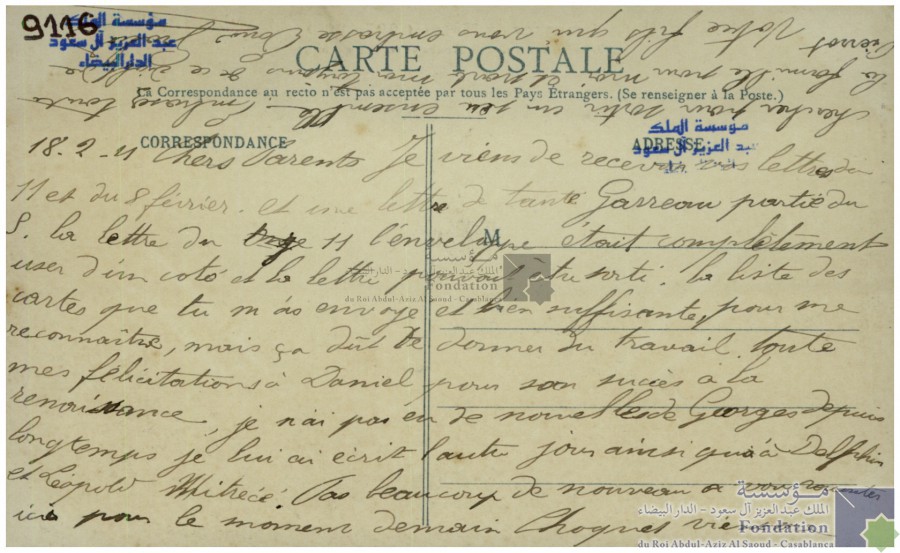 9116
مؤسسة الملك
عبد العزيز آل سعود
الدار البيضاء
CARTE POSTALE
La Correspondance au recto n'est pas acceptée par tous les Pays Étrangers. (Se renseigner à la Poste.)
CORRESPONDANCE
ADRESSE
مؤسسة الملك
عبد العزيز آل سعود
18.2-11 Chers Parents Je viens de recevoir vos lettres du
11 et du 8 février. et une lettre de tante Garreau partie du
5. la lettre du 11 l'envelope était complètement
M
user d'un coté et la lettre pouvait être sorti. la liste des
cartes que tu m'as envoyé et bien suffisante, pour me
reconnaître, mais ça dût te donner du travail. toute
mes félicitations à Daniel pour son succès à la
renaissance, je n'ai pas eu de nouvelles de Georges depuis
longtemps je lui ai écrit l'autre jour ainsi qu'à Delphin
et Léopold Pas beaucoup de nouveau a vous raconter
ici pour le moment demain Choquet vient
chercher pour sortir un peu ensemble. toute
la famille pour moi
Votre fils qui vous embrasse
Pierrot
مؤسسة
الملك عبد العزيز آل سعود - الدار البيضاء
Fondation
du Roi Abdul-Aziz Al Saoud - Casablanca
مؤسسة
الملك عبد العزيز آل سعود - الدار البيضاء
Fondation
du Roi Abdul-Aziz Al Saoud - Casablanca